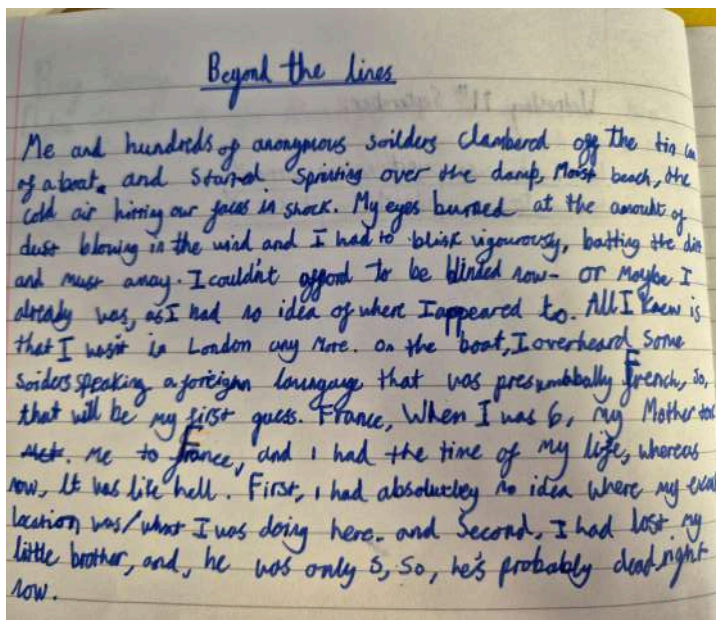 Beyond the lines
Me and hundreds of anonymous soilders clambered off the tin can
of a boat. and started sprinting over the damp, moist beach, the
cold air hitting our faces in shock. My eyes burned at the amount of
dust blowing in the wind and I had to blink vigourously, batting the dirt
and must away. I couldn't afford to be blinded now- or maybe I
already was, as I had no idea of where I appeared to. All I knew is
that I wasn't in London any more. on the boat, I overheard some
soiders speaking a foreighn launguage that was presumbbally French, so,
that will be my first guess. France, When I was 6, my Mother took
me to France, and I had the time of my life, whereas
now, It was like hell. First, I had absolutley no idea where my exact
location was/what I was doing here. and Second, I had lost my
little brother, and, he was only 5, So, he's probably dead right
now.